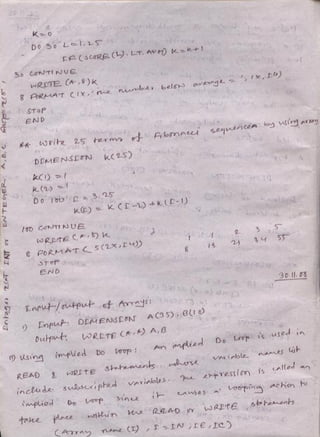 K=0
DO 30 L=1,25
IF (SCORE(L).LT.AVG) K=K+1
30 CONTINUE
WRITE (*,8)K
8 FORMAT (1X,'the number below average =',1X,I6)
STOP
END
Write 25 terms of Fibonacci sequences by using array
DIMENSION K(25)
K(1)=1
K(2)=1
DO 100 I=3,25
K(I) = K(I-2)+K(I-1)
100 CONTINUE
WRITE(*,8) K
8 FORMAT( 5(2X,I4))
1 1 2 3 5
8 13 21 34 55
STOP
END
30.11.03
Input/output of Arrays:
i) Input: DIMENSION A(35),B(10)
Output: WRITE(*,*) A,B
ii) Using implied Do loop: An implied Do loop is used in
READ & WRITE statements whose variable names list
include subscripted variables. The expression is called an
implied Do loop since it causes a looping action to
take place within the READ or WRITE statements
(Array name (I), I=IN,IE,IC)